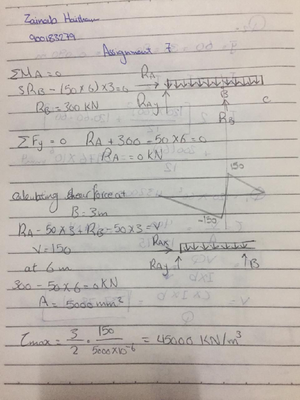 Zainab Haitham
900183279
Assignment 7
ΣMA = 0
3RB - (50 x 6) x 3 = 0
RB = 300 KN
RA
RAy
B
RB
C
ΣFy = 0 RA + 300 - 50 x 6 = 0
RA = 0 KN
150
-150
Calculating shear force at
B = 3m
RA - 50 x 3 + RB - 50 x 3 = V
V = 150
RAx
RAy
B
at 6 m
300 - 50 x 6 = 0 KN
A = 5000 mm²
τmax = 3/2 . 150/5000x10⁻⁶ = 45000 KN/m³